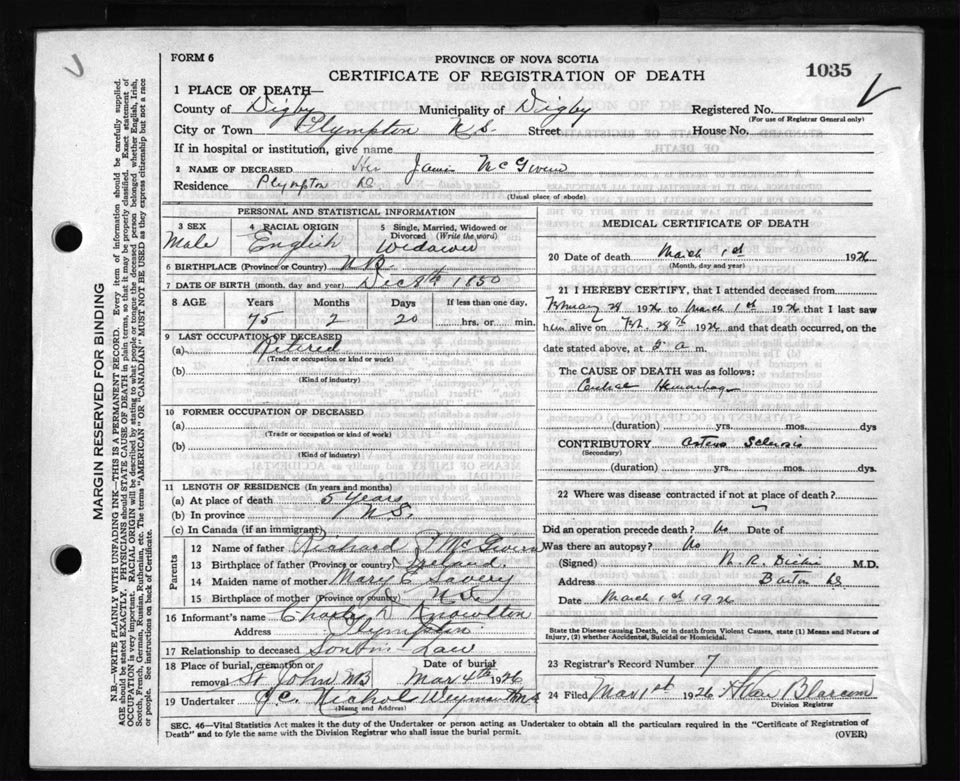 FORM 6
PROVINCE OF NOVA SCOTIA
CERTIFICATE OF REGISTRATION OF DEATH
1035
1 PLACE OF DEATH—
County of Digby Municipality of Digby Registered No.
(For use of Registrar General only)
City or Town Plympton N.S. Street House No.
If in hospital or institution, give name
2 NAME OF DECEASED McGivern
Residence Plympton
(Usual place of abode)
PERSONAL AND STATISTICAL INFORMATION
3 SEX
Male
4 RACIAL ORIGIN
English
5 Single, Married, Widowed or Divorced (Write the word)
Widower
6 BIRTHPLACE (Province or Country) N.B.
7 DATE OF BIRTH (month, day and year) Dec 9th 1850
8 AGE Years Months Days If less than one day,
75 2 20 hrs. or min.
9 LAST OCCUPATION OF DECEASED
(a) Retired
(Trade or occupation or kind or work)
(b)
(Kind of industry)
10 FORMER OCCUPATION OF DECEASED
(a)
(Trade or occupation or kind of work)
(b)
(Kind of industry)
11 LENGTH OF RESIDENCE (In years and months)
(a) At place of death 5 years
(b) In province N.S.
(c) In Canada (if an immigrant)
Parents
12 Name of father Richard J McGivern
13 Birthplace of father (Province or country) Ireland.
14 Maiden name of mother Mary E Savery
15 Birthplace of mother (Province or country) N.S.
16 Informant's name Charles D Knowlton
Address Plympton
17 Relationship to deceased Son in Law
18 Place of burial, cremation or removal St John NB Date of burial Mar 4th 1926
19 Undertaker Weymouth N.S
(Name and Address)
MEDICAL CERTIFICATE OF DEATH
20 Date of death March 1st 1926
(Month, day and year)
21 I HEREBY CERTIFY, that I attended deceased from
February 28 1926 to March 1st 1926 that I last saw
him alive on Feb. 28th 1926 and that death occurred, on the
date stated above, at 5 a m.
The CAUSE OF DEATH was as follows:
Hemorrhage
(duration) yrs. mos. dys
CONTRIBUTORY Arterio Sclerosis
(Secondary)
(duration) yrs. mos. dys.
22 Where was disease contracted if not at place of death?
Did an operation precede death? No Date of
Was there an autopsy? No
(Signed) M.D.
Address Barton
Date March 1st 1926
State the Disease causing Death, or in death from Violent Causes, state (1) Means and Nature of
Injury, (2) whether Accidental, Suicidal or Homicidal.
23 Registrar's Record Number 7
24 Filed Mar 1st 1926
Division Registrar
SEC. 46—Vital Statistics Act makes it the duty of the Undertaker or person acting as Undertaker to obtain all the particulars required in the "Certificate of Registration of
Death" and to fyle the same with the Division Registrar who shall issue the burial permit.
(OVER)
MARGIN RESERVED FOR BINDING
N.B.—WRITE PLAINLY WITH UNFADING INK—THIS IS A PERMANENT RECORD. Every item of information should be carefully supplied.
AGE should be stated EXACTLY. PHYSICIANS should STATE CAUSE OF DEATH in plain terms, so that it may be properly classified. Exact statement of
OCCUPATION is very important. RACIAL ORIGIN will be described by stating to what people or tongue the deceased person belonged whether English, Irish,
Scotch, French, German, Russian, Ruthenian, etc. The terms "AMERICAN" OR "CANADIAN" MUST NOT BE USED as they express citizenship but not a race
or people. See instructions on back of Certificate.